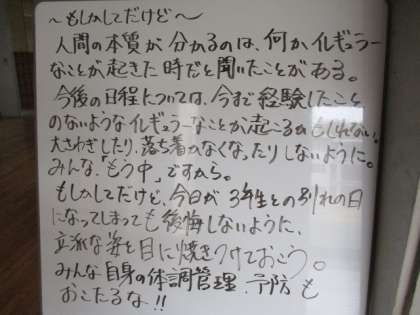 ～もしかしてだけど～
人間の本質が分かるのは、何かイレギュラー
なことが起きた時だと聞いたことがある。
今後の日程については、今まで経験したこと
のないようなイレギュラーなことが起こるかもしれない。
大さわぎしたり、落ち着かなくなったりしないように。
みんな、「もう中」ですから。
もしかしてだけど、今日が3年生との別れの日
になってしまっても後悔しないように、
立派な姿を目に焼きつけておこう。
みんな自身の体調管理、予防も
おこたるな!!